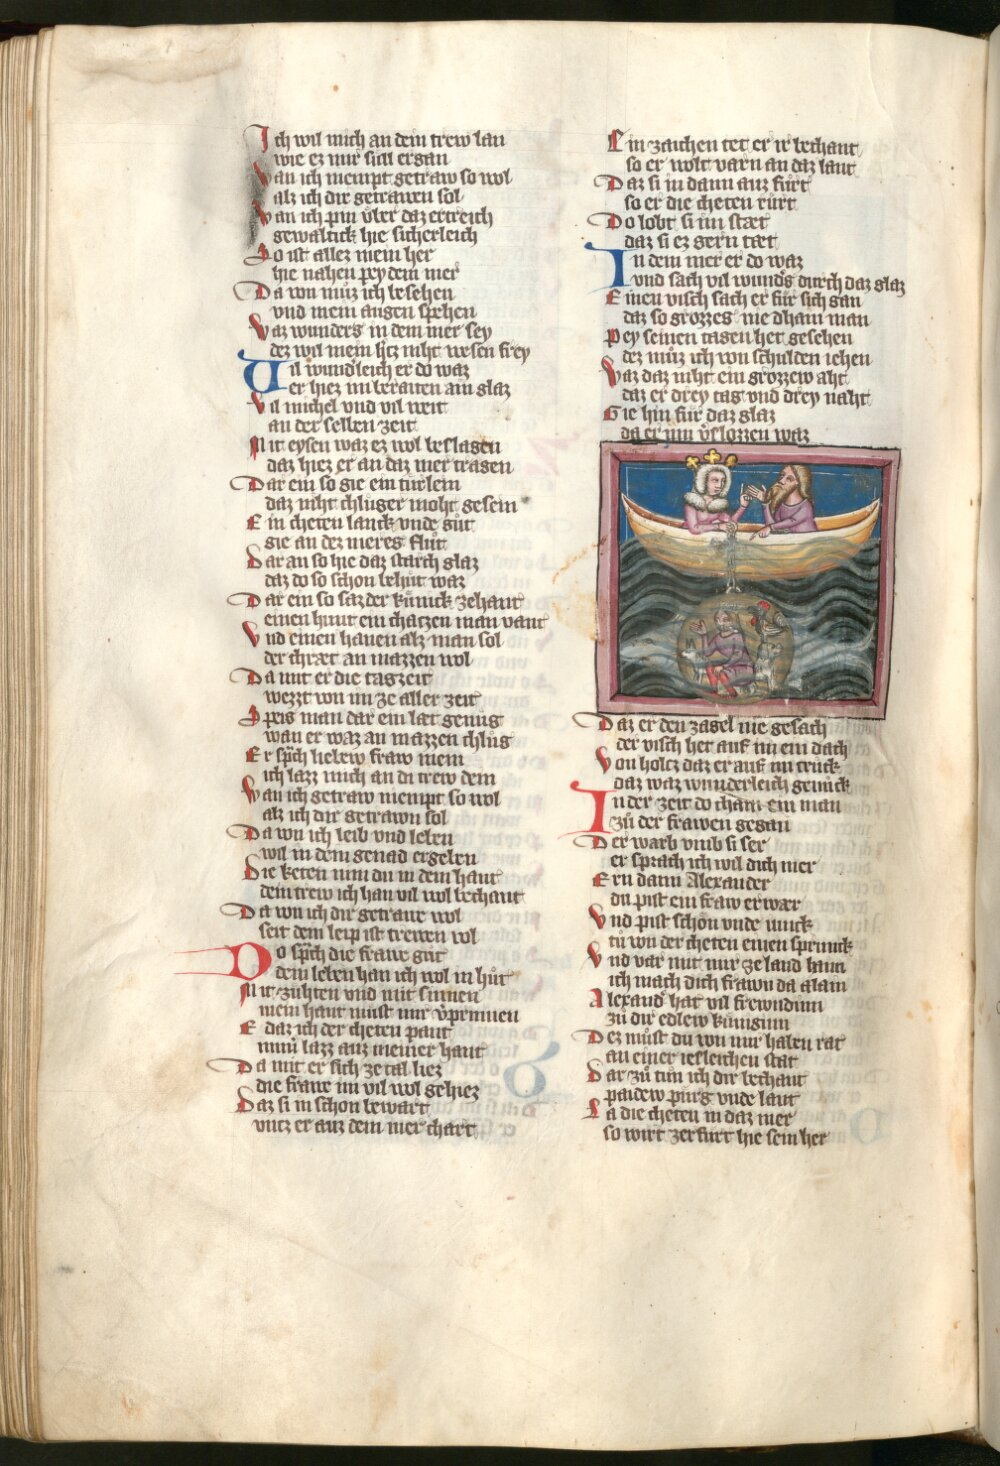 Ich wil mich an dein trew lan
wie ez mir sull ergan
Wan ich niempt getraw so wol
alz ich dir getrawen sol
Wan ich pin vͤber daz ertreich
gewaltick hie sicherleich
So ist allez mein her
hie nahen pey dem mer
Da von muͤz ich besehen
vnd mein augen spehen
Waz wunders in dem mer sey
dez wil mein hᵉtz niht wesen frey
Vil wundˀleich er do waz
er hiez im beraiten ain glaz
Vil michel vnd vil weit
an der selben zeit
Mit eysen waz ez wol beslagen
daz hiez er an daz mer tragen
Dar ein so gie ein tuͤrlein
daz niht chluͤger moht gesein
Ein cheten lanck vnde guͤt
gie an dez meres fluͤt
Dar an so hie daz starch glaz
daz do so schon behuͤt waz
Dar ein so saz der kuͤnick zehant
einen hunt ein chaczen man vant
Vnd einen hanen alz man sol
der chræt an mazzen wol
Da mit er die tagzeit
wezzt von im ze aller zeit
Speis man dar ein lat genuͤg
wan er waz an mazzen chluͤg
Er sprͥch liebew fraw mein
ich lazz mich an di trew dein
Wan ich getraw niempt so wol
alz ich dir getrawn sol
Da von ich leib vnd leben
wil in dein genad ergeben
Die keten nim du in dein hant
dein trew ich han vil wol bechant
Da von ich dir getrawe wol
seit dein leip ist trewen vol
Do sprͥch die frawe guͤt
dein leben han ich wol in huͤt
Mit zuͤhten vnd mit sinnen
mein hant muͤst mir vˀprinnen
E daz ich der cheten pant
immˀ lazz auz meiner hant
Da mit er sich ze tal liez
die frawe im vil wol gehiez
Daz si in schon bewart
vntz er auz dem mer chart
Ein zaichen tet er ir bechant
so er wolt varn an daz lant
Daz si in dann auz fuͤrt
so er die cheten ruͤrt
Do lobt si im stæt
daz si ez gern tæt
In dem mer er do waz
vnd sach vil wundˀs durch daz glaz
Einen visch sach er fuͤr sich gan
daz so grozzes nie dham man
Pey seinen tagen het gesehen
dez muͤz ich von schulden iehen
Waz daz niht ein grozzew aht
daz er drey tag vnd drey naht
Gie hin fuͤr daz glaz
da er inn vˀslozzen waz
Daz er den zagel nie gesach
der visch het auf im ein dach
Von holcz daz er auf im truͤck
daz waz wunderleich genuͤck
In der zeit do cham ein man
zuͤ der frawen gegan
Der warb vmb si ser
er sprach ich wil dich mer
Ern dann Alexander
du pist ein fraw erwær
Vnd pist schoͤn vnde iunck
tuͤ von der cheten einen sprunck
Vnd var mit mir ze land haim
ich mach dich frawn da alain
Alexandˀ hat vil frewndinn
zuͤ dir edlew kuͤnginn
Dez muͤst du von mir haben rat
an einer iesleichen stat
Dar zuͤ tuͤn ich dir bechant
paidew purg vnde lant
La die cheten in daz mer
so wirt zerfuͤrt hie sein her